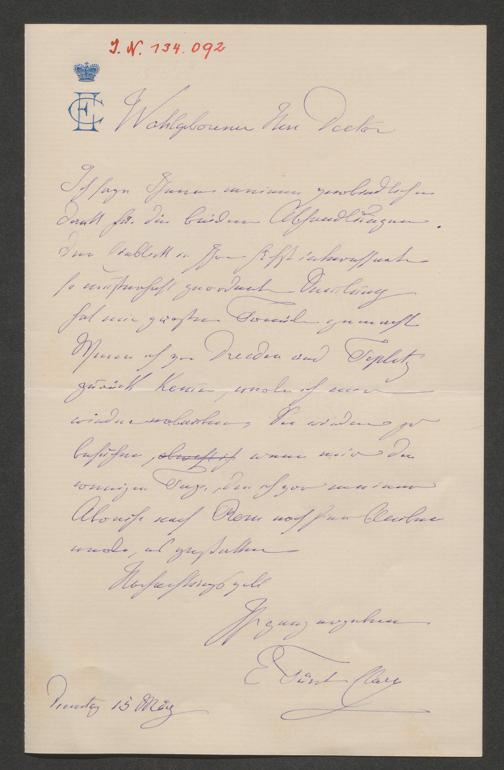 J. N. 134.092
EC
Wohlgeborener Herr Doctor
Ich sage Ihnen meinen verbindlichsten
Dank für die beiden Abhandlungen.
Der Einblick in Ihre höchst interessante
so meisterhaft geordnete Sammlung
hat mir große Freude gemacht
Wenn ich von Dresden und Teplitz
zurück komme, werde ich mir
wieder erlauben, Sie wieder zu
besuchen, wenn mir die
wenigen Tage, die ich vor meiner
Abreise nach Rom noch hier bleiben
werde, es gestatten
Hochachtungsvoll
Ihr ganz ergebener
E Fürst Clary
Dienstag 15 März